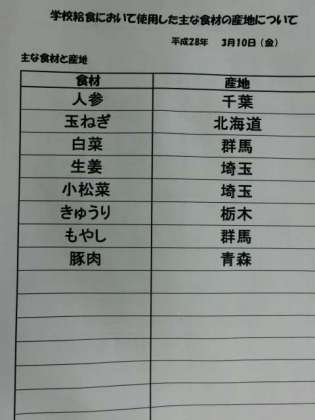 学校給食において使用した主な食材の産地について
平成28年 3月10日(金)
主な食材と産地
食材 産地
人参 千葉
玉ねぎ 北海道
白菜 群馬
生姜 埼玉
小松菜 埼玉
きゅうり 栃木
もやし 群馬
豚肉 青森